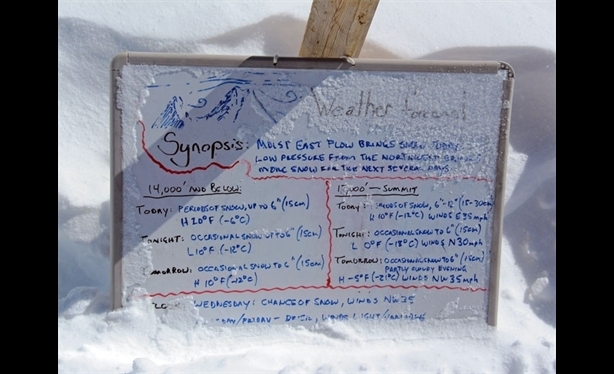 Weather Forecast
Synopsis: MOIST EAST FLOW BRINGS SNOW TODAY
LOW PRESSURE FROM THE NORTHWEST BRINGS
MORE SNOW FOR THE NEXT SEVERAL DAYS.
14,000' AND BELOW:
TODAY: PERIODS OF SNOW, UP TO 6" (15cm)
H 20°F (-6°C)
TONIGHT: OCCASIONAL SNOW UP TO 6" (15cm)
L 10°F (-12°C)
OCCASIONAL SNOW TO 6" (15cm)
H 10°F (-12°C)
— SUMMIT
TODAY: PERIODS OF SNOW, 6"-12" (15-30cm)
H 10°F (-12°C) WINDS E 35mph
TONIGHT: OCCASIONAL SNOW TO 6" (15cm)
L 0°F (-18°C) WINDS N 30mph
TOMORROW: OCCASIONAL SNOW TO 6" (15cm)
PARTLY CLOUDY EVENING
H -5°F (-21°C) WINDS NW 35mph
WEDNESDAY: CHANCE OF SNOW, WINDS NW 35
/FRIDAY - WINDS LIGHT/VARIABLE